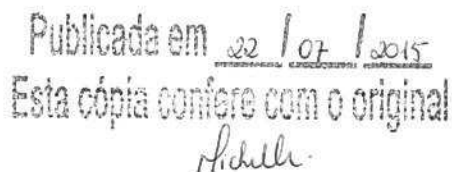 Publicada em 22 / 07 / 2015
Esta cópia confere com o original
Michelle.